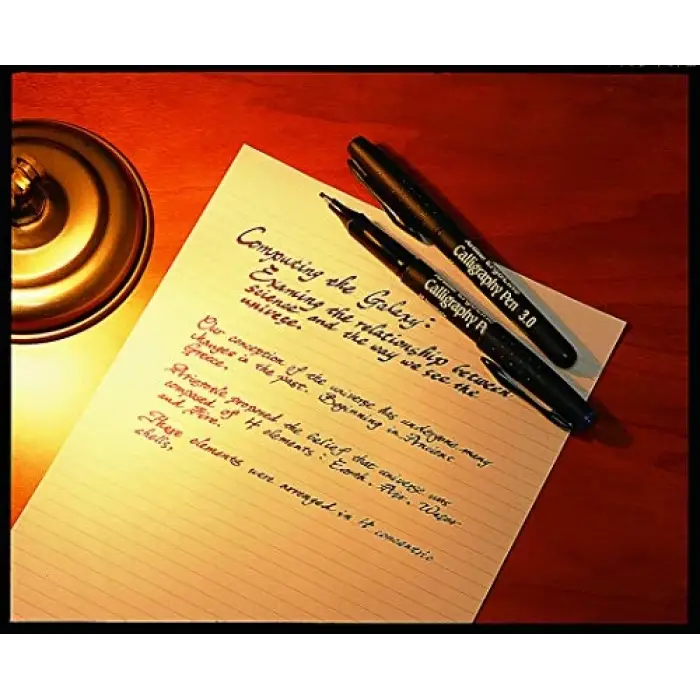 Computing the Galaxy:
Examing the relationship between
science and the way we see the
universe.
Our conception of the universe has undergone many
changes in the past. Beginning in Ancient
Greece.
Aristotle proposed the belief that universe was
composed of 4 elements: Earth, Air, Water
and Fire.
These elements were arranged in 4 concentric
shells.
Calligraphy Pen 3.0
Calligraphy P